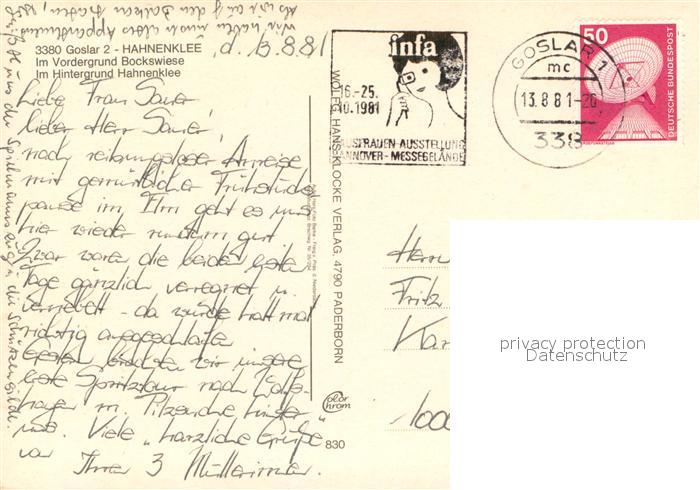 3380 Goslar 2 - HAHNENKLEE
Im Vordergrund Bockswiese
Im Hintergrund Hahnenklee
, d. 13.8.81
Liebe Frau Sauer
lieber Herr Sauer,
nach reibungsloser Anreise
mit gemütlicher Frühstücks
pause im Elm geht es uns
hier wieder rundum gut
Zwar waren die beiden ersten
Tage gänzlich verregnet u.
vernebelt - da wurde halt mal
richtig ausgeschlafen
Gestern brachten wir unsere
erste Spritztour nach Wolfs-
hagen m. Pilzsuche hinter
uns. Viele "harzliche Grüße"
von Ihren 3
Wir hatten durch unser Appartement
als wir auf den Balkon traten,
und die Schützengilde.
infa
16.-25.
10.1981
HAUSFRAUEN-AUSSTELLUNG
HANNOVER-MESSEGELÄNDE
GOSLAR 1
mc
13.8.81-20
338
50
DEUTSCHE BUNDESPOST
WOLFG. HANS KLOCKE VERLAG, 4790 PADERBORN
Color
chrom
830
Herrn
Fritz
Kar
1000
privacy protection
Datenschutz